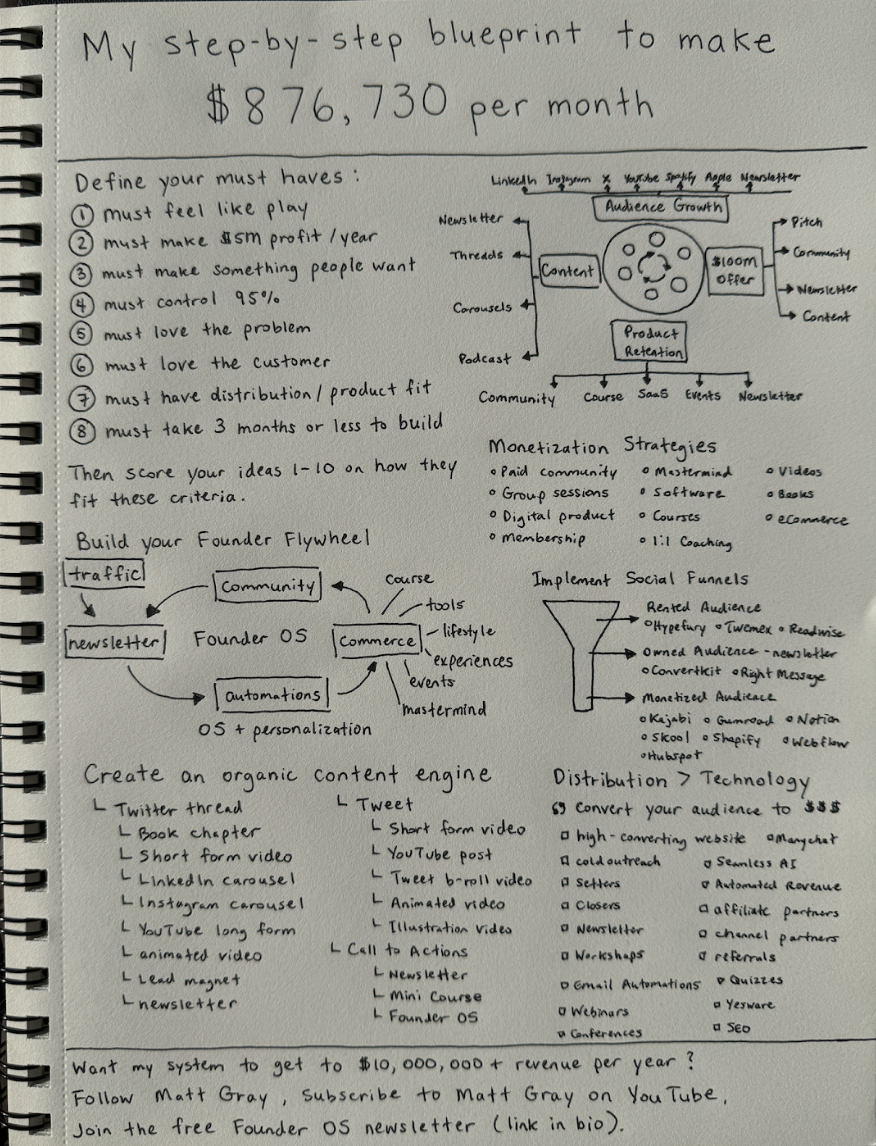 My step-by-step blueprint to make
$876,730 per month
Define your must haves:
① must feel like play
② must make $5M profit/year
③ must make something people want
④ must control 95%
⑤ must love the problem
⑥ must love the customer
⑦ must have distribution/product fit
⑧ must take 3 months or less to build
Then score your ideas 1-10 on how they
fit these criteria.
LinkedIn Instagram X YouTube Spotify Apple Newsletter
Audience Growth
Newsletter
Threads
Carousels
Podcast
Content
$100M
Offer
Pitch
Community
Newsletter
Content
Product
Retention
Community Course SaaS Events Newsletter
Monetization Strategies
• Paid community • Mastermind • Videos
• Group sessions • Software • Books
• Digital product • Courses • eCommerce
• Membership • 1:1 Coaching
Build your Founder Flywheel
traffic
community
newsletter
Founder OS
commerce
automations
OS + personalization
course
tools
lifestyle
experiences
events
mastermind
Implement Social Funnels
Rented Audience
• Hypefury • Twemex • Readwise
Owned Audience - newsletter
• Convertkit • Right Message
Monetized Audience
• Kajabi • Gumroad • Notion
• Skool • Shopify • Webflow
• Hubspot
Create an organic content engine
Twitter thread
Book chapter
Short form video
LinkedIn carousel
Instagram carousel
YouTube long form
animated video
Lead magnet
newsletter
Tweet
Short form video
YouTube post
Tweet b-roll video
Animated video
Illustration video
Call to Actions
Newsletter
Mini Course
Founder OS
Distribution > Technology
Convert your audience to $$$
high-converting website Manychat
cold outreach Seamless AI
Setters Automated Revenue
Closers affiliate partners
Newsletter channel partners
Workshops referrals
Email Automations Quizzes
Webinars Yesware
Conferences SEO
Want my system to get to $10,000,000+ revenue per year?
Follow Matt Gray, Subscribe to Matt Gray on YouTube,
Join the free Founder OS newsletter (link in bio).